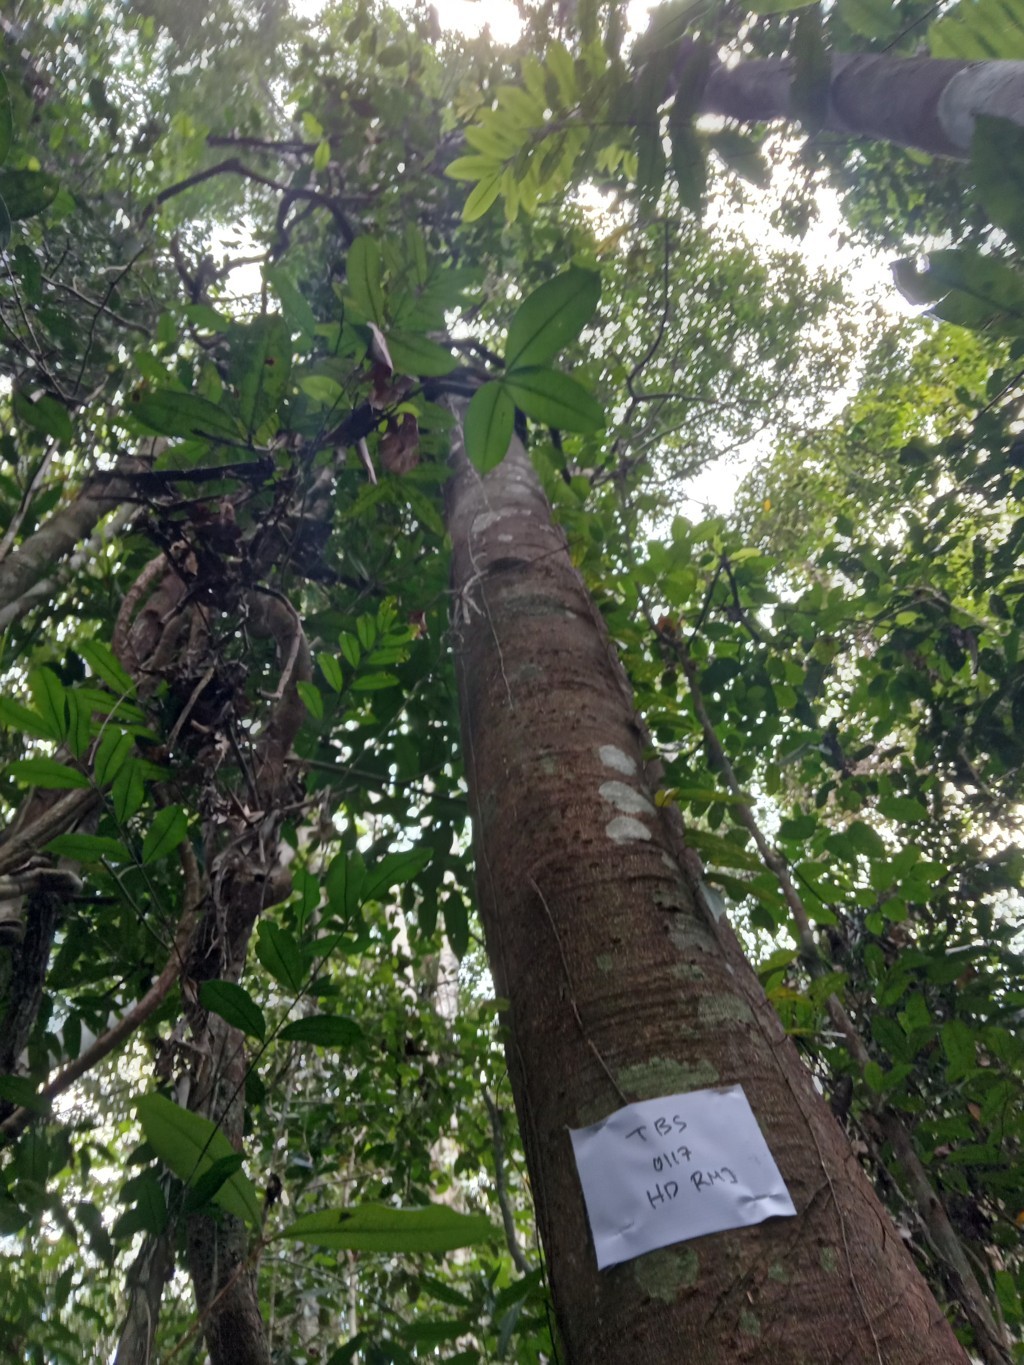 TBS
0117
HD RMJ